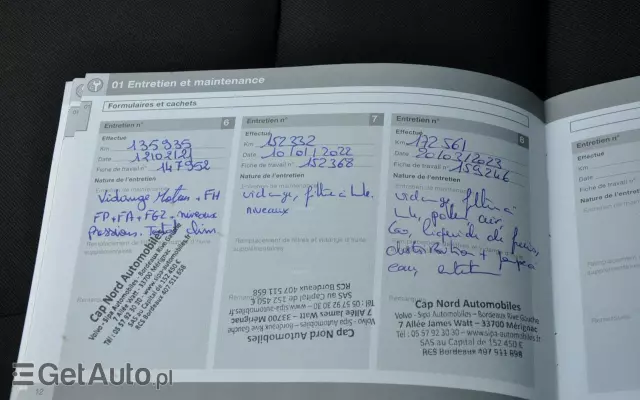 01 Entretien et maintenance
Formulaires et cachets
Entretien n° 6
Effectué
Km 135935
Date 12/02/21
Fiche de travail n° 147952
Nature de l'entretien
Vidange Moteur + FH
FP+FA+ niveaux
pressions.
Cap Nord Automobiles
Volvo - Sipa Automobiles - Bordeaux Rive Gauche
7 Allée James Watt - 33700 Mérignac
Tél : 05 57 92 30 30 - www.sipa-automobiles.com
SAS au Capital de 152 450 €
RCS Bordeaux 407 511 658
12
Entretien n° 7
Effectué
Km 152332
Date 10/01/2022
Fiche de travail n° 152368
Nature de l'entretien
vidange, filtre à
niveaux
Remplacement de filtres et vidange à titre
supplémentaire
Cap Nord Automobiles
Volvo - Sipa Automobiles - Bordeaux Rive Gauche
7 Allée James Watt - 33700 Mérignac
Tél : 05 57 92 30 30 - www.sipa-automobiles.com
SAS au Capital de 152 450 €
RCS Bordeaux 407 511 658
Entretien n° 8
Effectué
Km 172561
Date 20/03/2023
Fiche de travail n° 159246
Nature de l'entretien
vidange, filtre à
air
liquide de frein,
distribution + pompe à
eau,
Cap Nord Automobiles
Volvo - Sipa Automobiles - Bordeaux Rive Gauche
7 Allée James Watt - 33700 Mérignac
Tél : 05 57 92 30 30 - www.sipa-automobiles.com
SAS au Capital de 152 450 €
RCS Bordeaux 407 511 658
Entretien n°
Effectué
Km
Date
Fiche de travail
Nature de l'entretien
GetAuto.pl